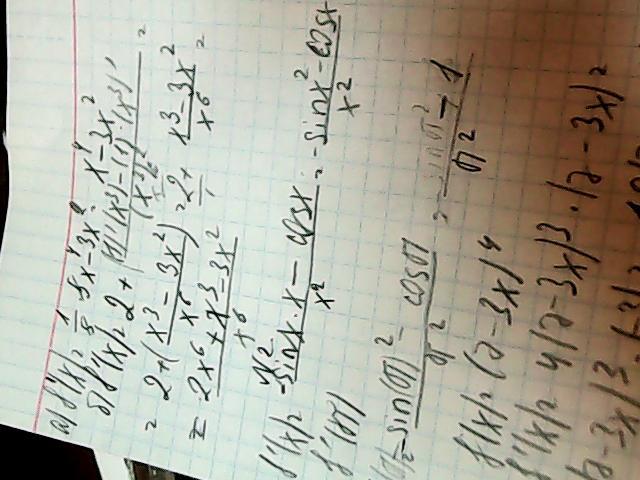 a) f'(x) = 1/5 · 5x⁴ - 3x² = x⁴ - 3x²
б) f'(x) = 2 + ((1)'(x³) - (1)·(x³)')/(x³)² =
= 2 + (x³ - 3x²)/x⁶ = 2/1 + (x³ - 3x²)/x⁶ =
= (2x⁶ + x³ - 3x²)/x⁶
f'(x) = (-sinx · x - cosx)/x² = (-sinx² - cosx)/x²
f'(π)
(-sin(π)² - cosπ)/π² = (-sinπ² + 1)/π²
f(x) = (2 - 3x)⁴
f'(x) = 4(2 - 3x)³ · (2 - 3x)